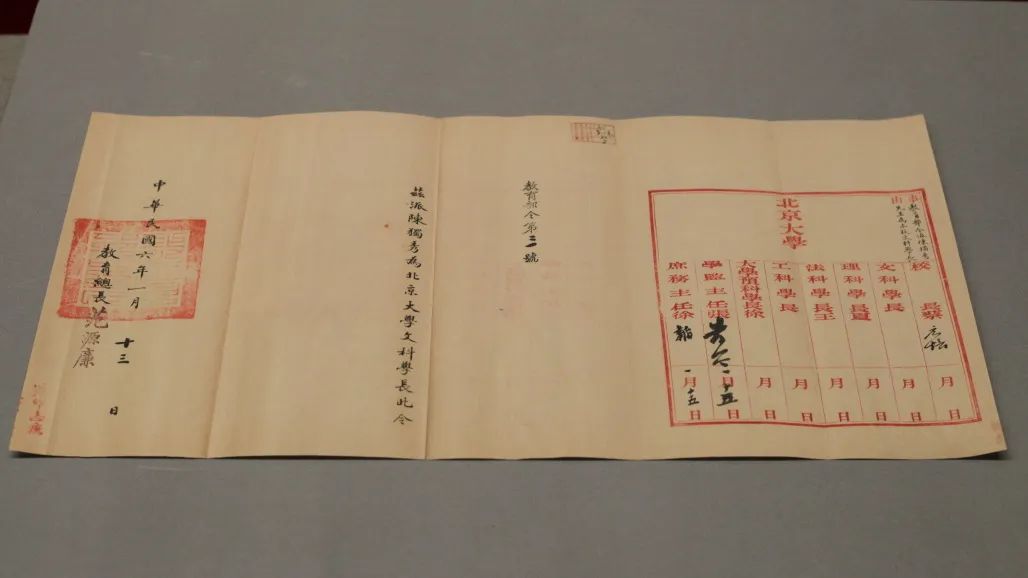 事由
教育部令派陳獨秀
先生為本校文科學長
北京大學
校長蔡
文科學長
理科學長夏
法科學長王
工科學長
大學預科學長徐
學監主任張
庶務主任徐
月 日
月 日
月 日
月 日
月 日
月 日
一月十五日
一月十五日
教育部令第三號
茲派陳獨秀為北京大學文科學長此令
中華民國六年一月十三日
教育總長范源廉